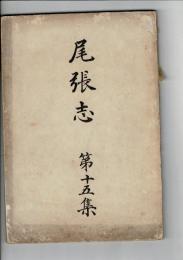 尾張志
第十五集